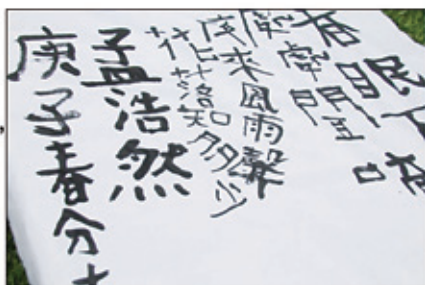 春眠不
處處聞啼
夜來風雨聲
花落知多少
孟浩然
庚子春分